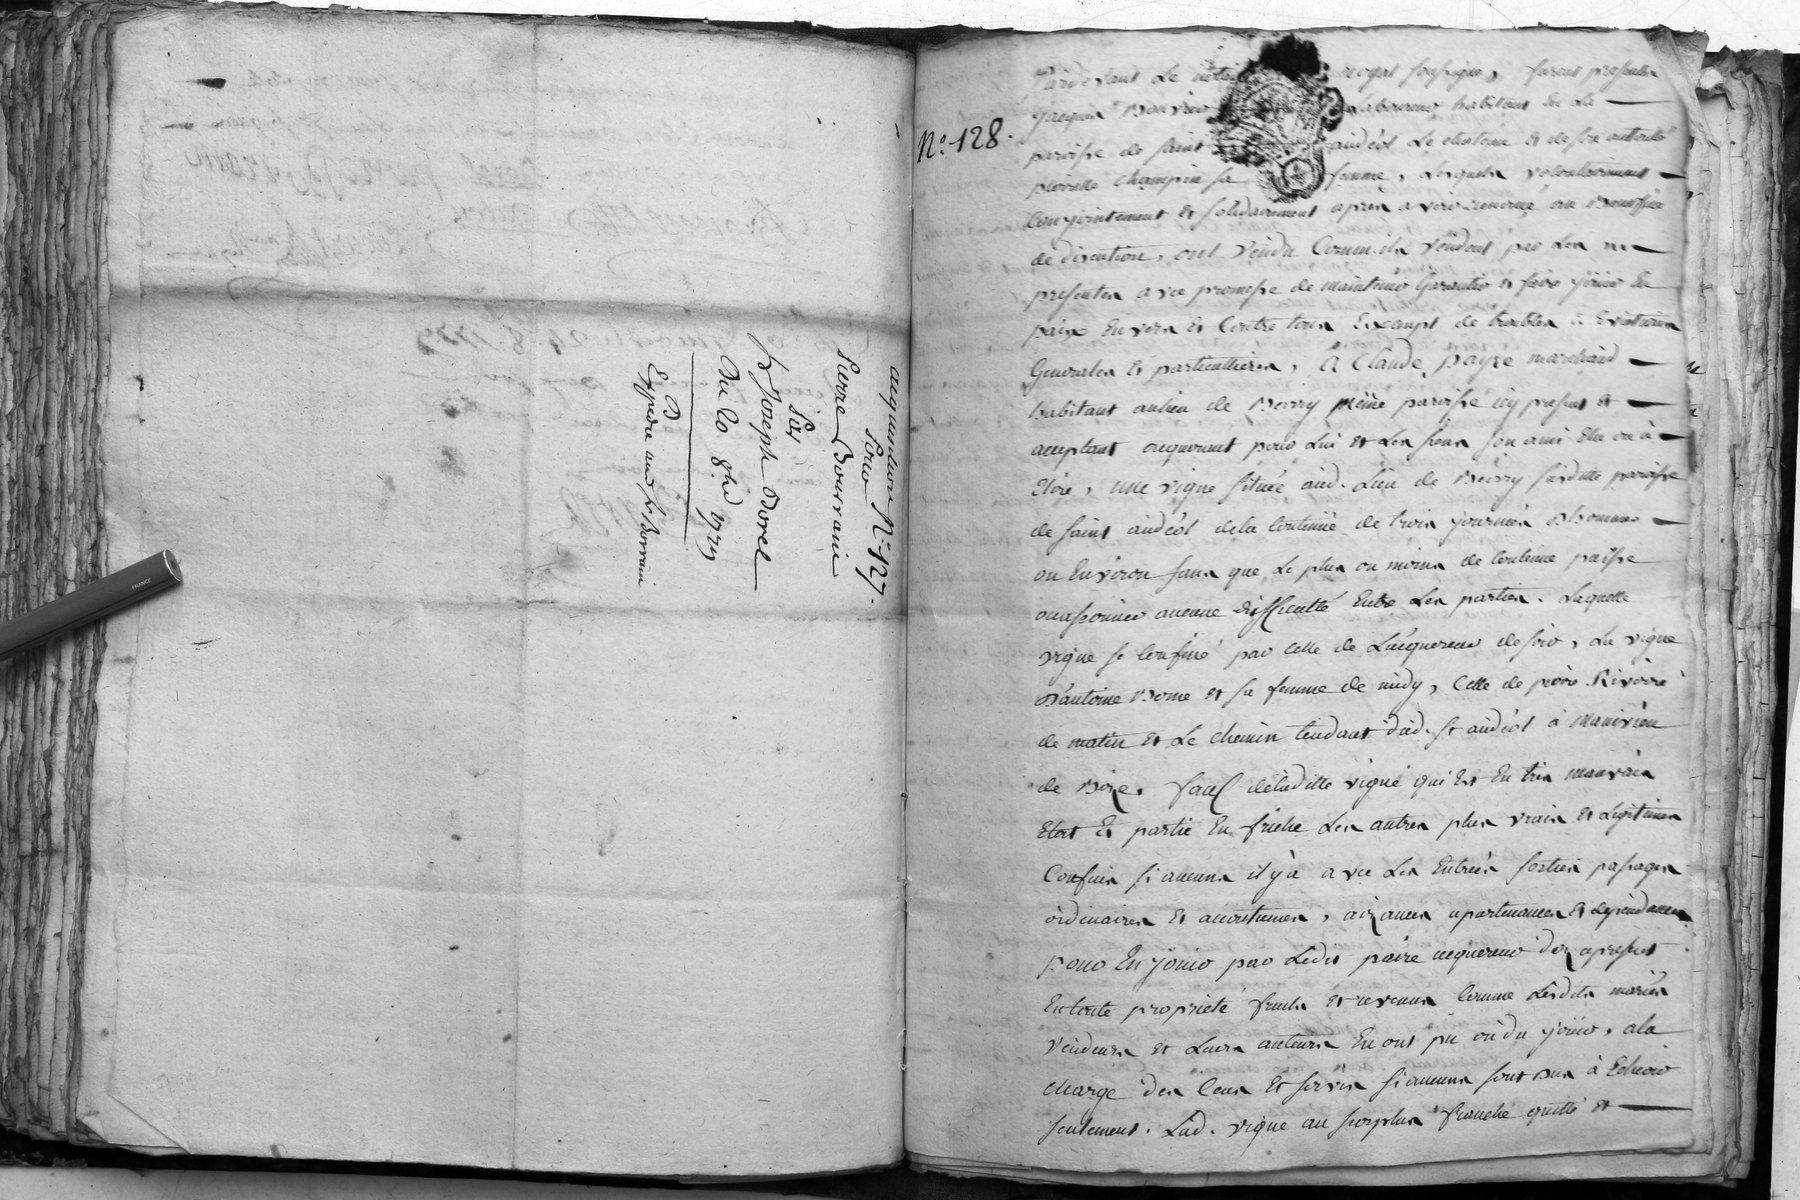 acquisition N.° 127.
pour
pierre Bourrain
Par
Sr. Joseph Borel
Du 20 8bre 17
Expedié aud. Sr. Borrain
FRANCE
N.° 128.
Pardevant Le royal soussigné, furent presents
Jacques Laboureur habitant en La
paroisse de saint andéol Le chateau et de son autorité
pierrette champin sa femme, Lesquels volontairement
conjointement et solidairement après avoir renoncé au Benefice
de discution, ont vendu Comm'ils vendent par Les
presentes avec promesse de maintenir Garantir et faire jouir En
paix Envers et Contre tous Exempt de troubles & Evictions
Generales et particullieres, à Claude payre marchand
habitant au lieu de Bérry même paroisse icy present et
acceptant acquereur pour Lui et Les siens son ami élu ou à
Elire, une vigne située aud. Lieu de Bérry susditte paroisse
de saint andéol de la Contenue de trois journées D'homme
ou Environ sans que Le plus ou moins de Contenue puisse
occasionner aucune difficulté Entre Les parties. Laquelle
vigne se Confine par celle de L'acquereur de soir, La vigne
D'antoine Bome et sa femme de midy, Celle de pierre Rivoire
de matin et Le chemin tendant dud. st andéol à Manivieu
de Bize. Sauf de laditte vigne qui Est En très mauvais
Etat Et partie En friche Les autres plus vrais et Legitimes
Confins si aucuns il y a avec Les Entrées sorties passages
ordinaires et accoutumés, aizances apartenances et dependances
pour En jouir par Ledit païre acquereur dez apresent
En toute proprieté fruits et revenus Comme Lesdits mariés
vendeurs et Leurs auteurs En ont pu ou dû jouir, a la
charge des Cens et servis si aucuns sont dus à Echoir
seulement. Lad. vigne au surplus franche quitte et